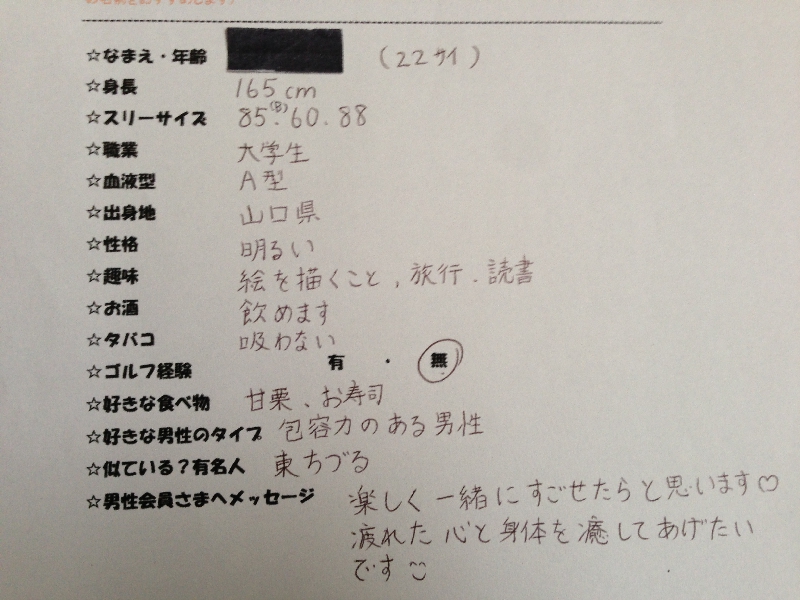 ☆なまえ・年齢 (22サイ)
☆身長 165cm
☆スリーサイズ 85.(B) 60. 88
☆職業 大学生
☆血液型 A型
☆出身地 山口県
☆性格 明るい
☆趣味 絵を描くこと, 旅行. 読書
☆お酒 飲めます
☆タバコ 吸わない
☆ゴルフ経験 有 ・ 無
☆好きな食べ物 甘栗、お寿司
☆好きな男性のタイプ 包容力のある男性
☆似ている?有名人 東ちづる
☆男性会員さまへメッセージ 楽しく一緒にすごせたらと思います♡
疲れた心と身体を癒してあげたい
です